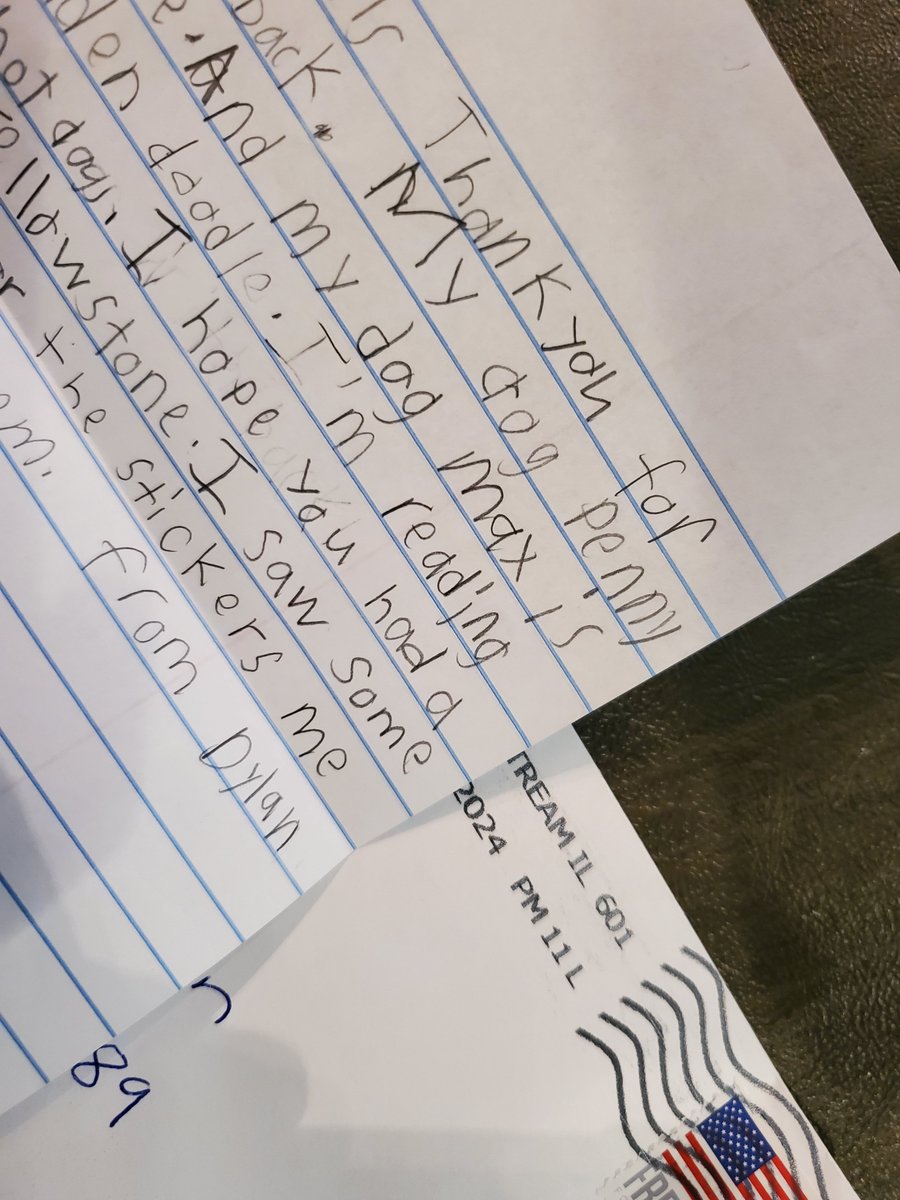 ls Thank you for
back. My dog penny
e. And my dog max is
den doodle. I'm reading
hot dog. I hope you had a
llowstone. I saw some
r the stickers me
om. from Dylan
TREAM IL 601
2024 PM 11 L
89